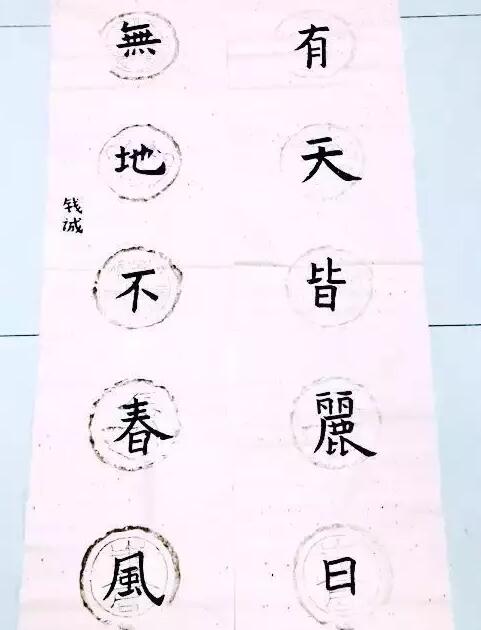 有天皆麗日
無地不春風
钱诚